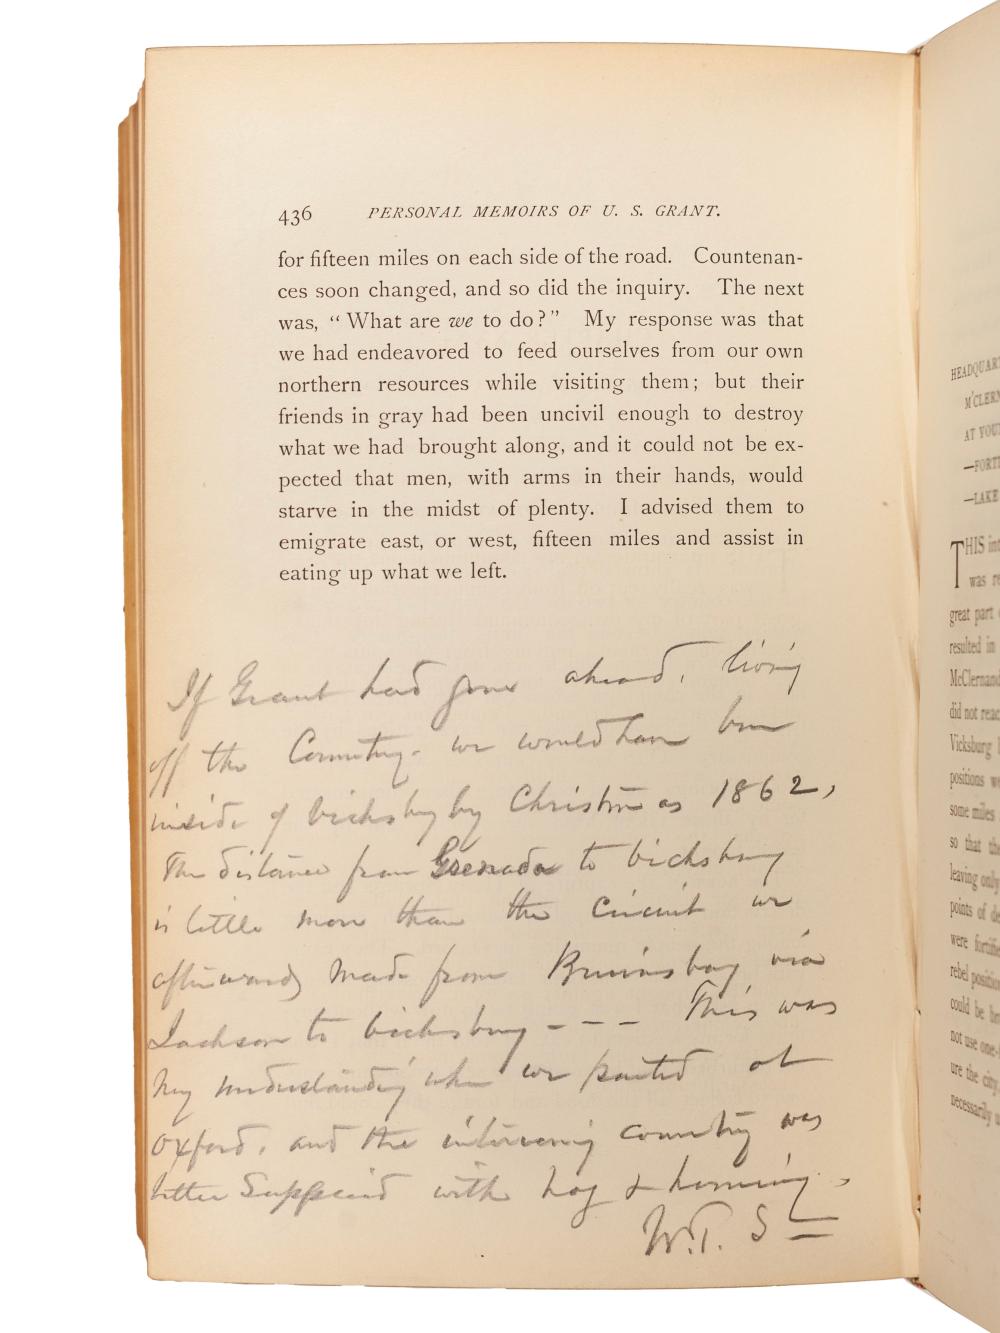 436 PERSONAL MEMOIRS OF U. S. GRANT.
for fifteen miles on each side of the road. Countenan-
ces soon changed, and so did the inquiry. The next
was, “What are we to do?” My response was that
we had endeavored to feed ourselves from our own
northern resources while visiting them; but their
friends in gray had been uncivil enough to destroy
what we had brought along, and it could not be ex-
pected that men, with arms in their hands, would
starve in the midst of plenty. I advised them to
emigrate east, or west, fifteen miles and assist in
eating up what we left.
If Grant had gone ahead, living
off the Country - we would have been
inside of Vicksburg by Christmas 1862,
The distance from Grenada to Vicksburg
is little more than the circuit we
afterwards made from Bruinsburg via
Jackson to Vicksburg - - - This was
my understanding when we parted at
Oxford, and the intervening country was
better supplied with hog & hominy.
W.T. S
HEADQUAR
M'CLERN
AT YOU
—FORTI
—LAKE
THIS int
was re
great part
resulted in
McClernand
did not reac
Vicksburg
positions w
some miles
so that the
leaving only
points of de
were fortifie
rebel position
could be
not use one-
ure the city,
necessarily